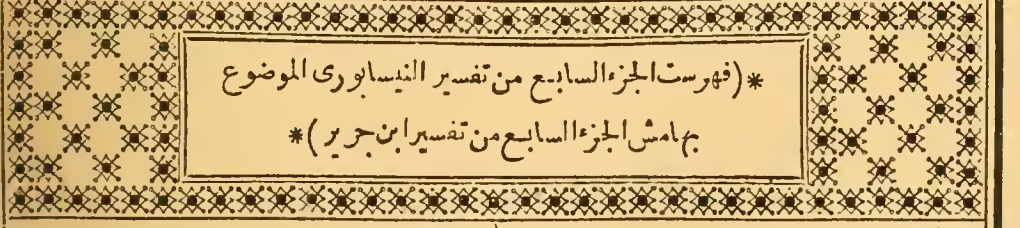 *(فهرست الجزء السابع من تفسير النيسابورى الموضوع
بهامش الجزء السابع من تفسير ابن جرير)*